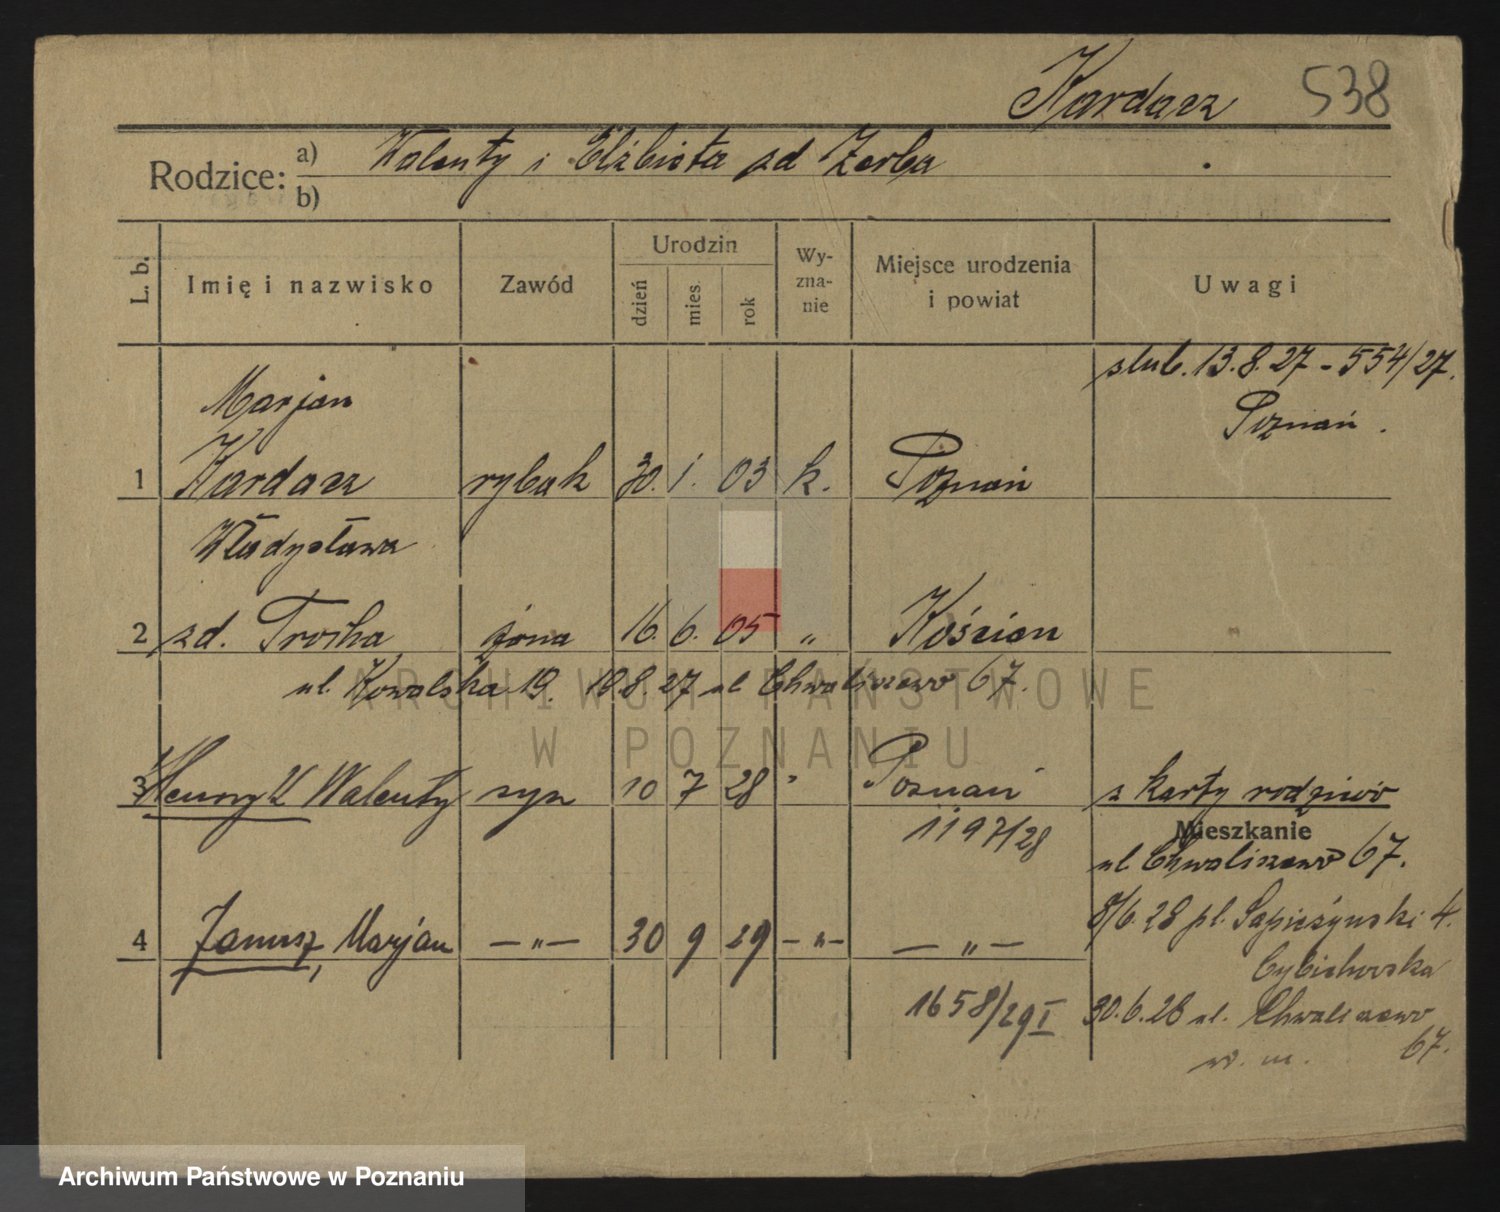 Kardacz 538
Rodzice: a) Walenty i Elżbieta zd Zerba
b)
L. b. Imię i nazwisko Zawód Urodzin dzień mies. rok Wyznanie Miejsce urodzenia i powiat Uwagi
ślub. 13.8.27 - 554/27.
Poznań.
Marjan
1 Kardacz rybak 30. 1. 03 k. Poznań
Władysława
2 zd. Troska żona 16. 6. 05 " Kościan
ul. Kowalska 19. 19.8.27 ul Chwaliszewo 67.
3 Henryk Walenty syn 10 7 28 " Poznań z karty rodziców
1197/28
Mieszkanie
ul Chwaliszewo 67.
8/6.28 pl. Sapieżyński 4.
4 Janusz, Marjan —"— 30 9 29 —"— —"—
Cybichowska
1658/29 I
30.6.28 ul. Chwaliszewo
67.
w. m.
ARCHIWUM PAŃSTWOWE
W POZNANIU
Archiwum Państwowe w Poznaniu